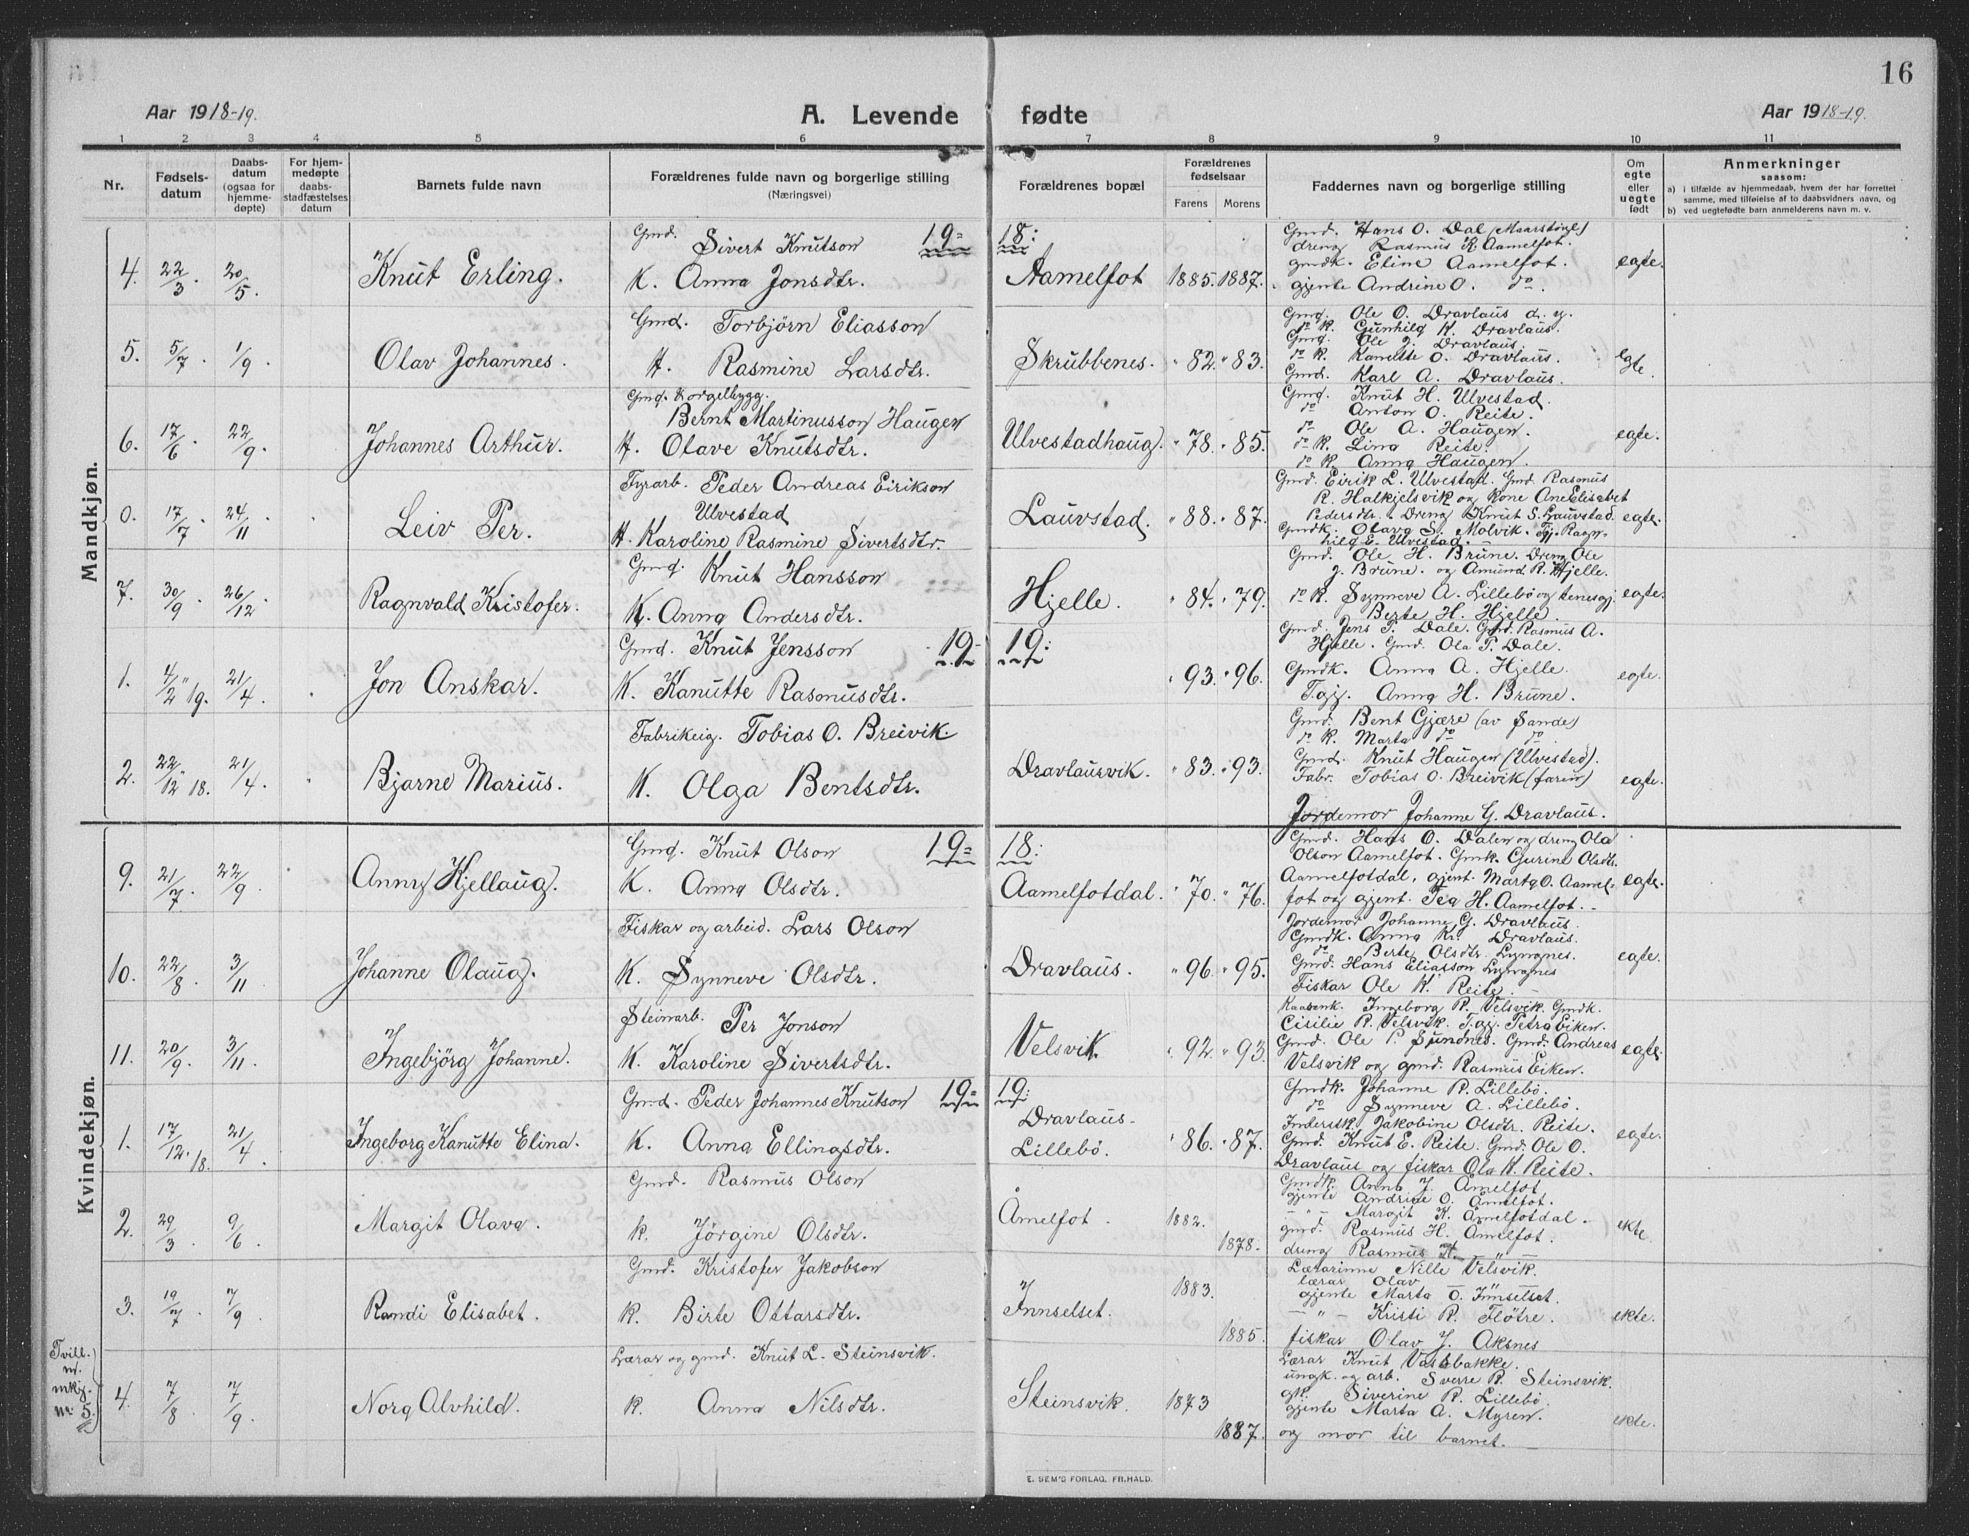 16
Aar 1918-19.
A. Levende fødte
Aar 1918-19.
1 2 3 4 5 6 7 8 9 10 11
Nr.
Fødsels-
datum
Daabs-
datum
(ogsaa for
hjemme-
døpte)
For hjem-
medøpte
daabs-
stadfæstelses
datum
Barnets fulde navn
Forældrenes fulde navn og borgerlige stilling
(Næringsvei)
Forældrenes bopæl
Forældrenes
fødselsaar
Farens Morens
Faddernes navn og borgerlige stilling
Om
egte
eller
uegte
født
Anmerkninger
saasom:
a) i tilfælde av hjemmedaab, hvem der har forrettet
samme, med tilføielse af to daabsvidners navn, og
b) ved uegtefødt barn anmelderens navn m. v.
Mandkjøn.
19= 18:
4. 22/3. 20/5. Knut Erling.
Gmd. Sivert Knutson
K. Anna Jonsdtr.
Aamelfot 1885. 1887.
Gmd. Hans O. Dal (Maarstøyl)
dreng Rasmus K. Aamelfot.
gmdk. Eline Aamelfot.
gjente Andrine O. do.
egte.
5. 5/7. 1/9. Olav Johannes.
Gmd. Torbjörn Eliasson
K. Rasmine Larsdtr.
Skrubbenes. " 82. " 83.
Gmd. Ole O. Dravlaus d. y.
do K. Gunhild K. Dravlaus.
Gmd. Ole J. Dravlaus.
do K. Kanutte O. Dravlaus.
Gmd. Karl A. Dravlaus.
egte.
6. 17/6. 22/9. Johannes Arthur.
Gmd. & orgelbygg.
Bernt Martinusson Haugen
K. Olave Knutsdtr.
Ulvestadhaug. " 78. " 85.
Gmd. Knut H. Ulvestad.
do Anton O. Reite.
do Ole A. Haugen.
do K. Lina Reite.
do K. Anna Haugen.
egte.
0. 17/7. 24/11. Leiv Per.
Fyrarb. Peder Andreas Eirikson
Ulvestad
K. Karoline Rasmine Sivertsdtr.
Lauvstad. " 88. " 87.
Gmd. Eirik L. Ulvestad. Gmd Rasmus
R. Halkjelsvik og kone Ane Elisabet
Pedersdtr. Dreng Knut S. Lauvstad.
Gmdk. Olava S. Molvik. Tj. Ragn-
hild E. Ulvestad.
egte.
7. 30/9. 26/12. Ragnvald Kristofer.
Gmd. Knut Hansson
K. Anna Andersdtr.
Hjelle. " 84. " 79.
Gmd. Ole H. Brune. Dreng Ole
J. Brune. og Amund R. Hjelle.
do K. Synneve A. Lillebö og tenesgj.
Berte H. Hjelle.
egte.
19= 19:
1. 4/2 19. 21/4. Jon Anskar.
Gmd. Knut Jensson
K. Kanutte Rasmusdtr.
" 93. " 96.
Gmd. Jens P. Dale. Gmd. Rasmus A.
Hjelle. Gmd. Ola P. Dale.
Gmdk. Anna A. Hjelle.
T.gj. Anna H. Brune.
egte.
2. 22/12 18. 21/4. Bjarne Marius.
Fabrikeig. Tobias O. Breivik.
K. Olga Bentsdtr.
Dravlausvik. " 83. " 93.
Gmd. Bent Gjære (av Sande)
do K. Marta do do.
Gmd. Knut Haugen (Ulvestad).
Fabr. Tobias O. Breivik (faren)
Jordemor Johanne G. Dravlaus.
egte.
Kvindekjøn.
19= 18:
9. 21/7. 22/9. Anny Kjellaug.
Gmd. Knut Olson
K. Anna Olsdtr.
Aamelfotdal. " 70. " 76.
Gmd. Hans O. Dalen og dreng Ola
Olson Aamelfot. Gmk. Gurine Olsdtr.
Aamelfotdal, gjent. Marta O. Aamel-
fot og gjent. Tea H. Aamelfot.
egte.
10. 22/8. 3/11. Johanne Olaug.
Fiskar og arbeid. Lars Olson
K. Synneve Olsdtr.
Dravlaus. " 96. " 95.
Jordemor Johanne G. Dravlaus.
Gmdk. Anna Kr. Dravlaus.
do Berte Olsdtr. Lyngnes.
Gmd. Hans Eliasson Lyngnes
Fiskar Ole K. Reite.
egte.
11. 20/9. 3/11. Ingebjörg Johanne.
Steinarb. Per Jonson
K. Karoline Sivertsdtr.
Velsvik. " 92. " 93.
Ingeborg R. Velsvik. Gmdk.
Cisilie R. Velsvik. T.gj. Petra Eiken.
Gmd. Ole P. Sundnes. Gmd. Andreas
Velsvik og gmd. Rasmus Eiken.
egte.
19= 19:
1. 17/12. 18. 21/4. Ingeborg Kanutte Elina.
Gmd. Peder Johannes Knutson
K. Anna Ellingsdtr.
Dravlaus-
Lillebö. " 86. " 87.
Gmdk. Johanne R. Lillebö.
do Synneve A. Lillebö.
Jakobine Olsdtr. Reite.
Gmd. Knut E. Reite. Gmd. Ole O.
Dravlaus og fiskar Ola K. Reite.
egte.
2. 29/3. 9/6. Margit Olava.
Gmd. Rasmus Olson
k. Jørgine Olsdtr.
Åmelfot. 1882. 1878.
Gmdk. Anna J. Åmelfot
gjente Andrine O. Åmelfot.
— " — Margit K. Åmelfotdal.
gmd. Rasmus H. Åmelfot.
dreng Rasmus K. — " —
ekte
3. 19/7. 7/9. Randi Elisabet.
Gmd. Kristofer Jakobson
k. Birte Ottarsdtr.
Innselset. 1883. 1885.
Lærarinne Nille Velsvik.
lærar Olav — " —
gjente Marta O. Innselset.
— " — Kristi R. Fløtre.
fiskar Olav J. Aksnes
ekte.
Tvill.
m.
mkj.
nr. 5.
4. 7/8. 7/9. Nora Alvhild.
Lærar og gmd. Knut L. Steinsvik.
k. Anna Nilsdtr.
Steinsvik. 1873 1887.
Lærar Knut Vassbakke.
ungk. og arb. Sverre P. Steinsvik.
gk. Siverine P. Lillebö.
gjente Marta A. Myren.
og mor til barnet.
ekte.
E. SEM'S FORLAG, FR.HALD.